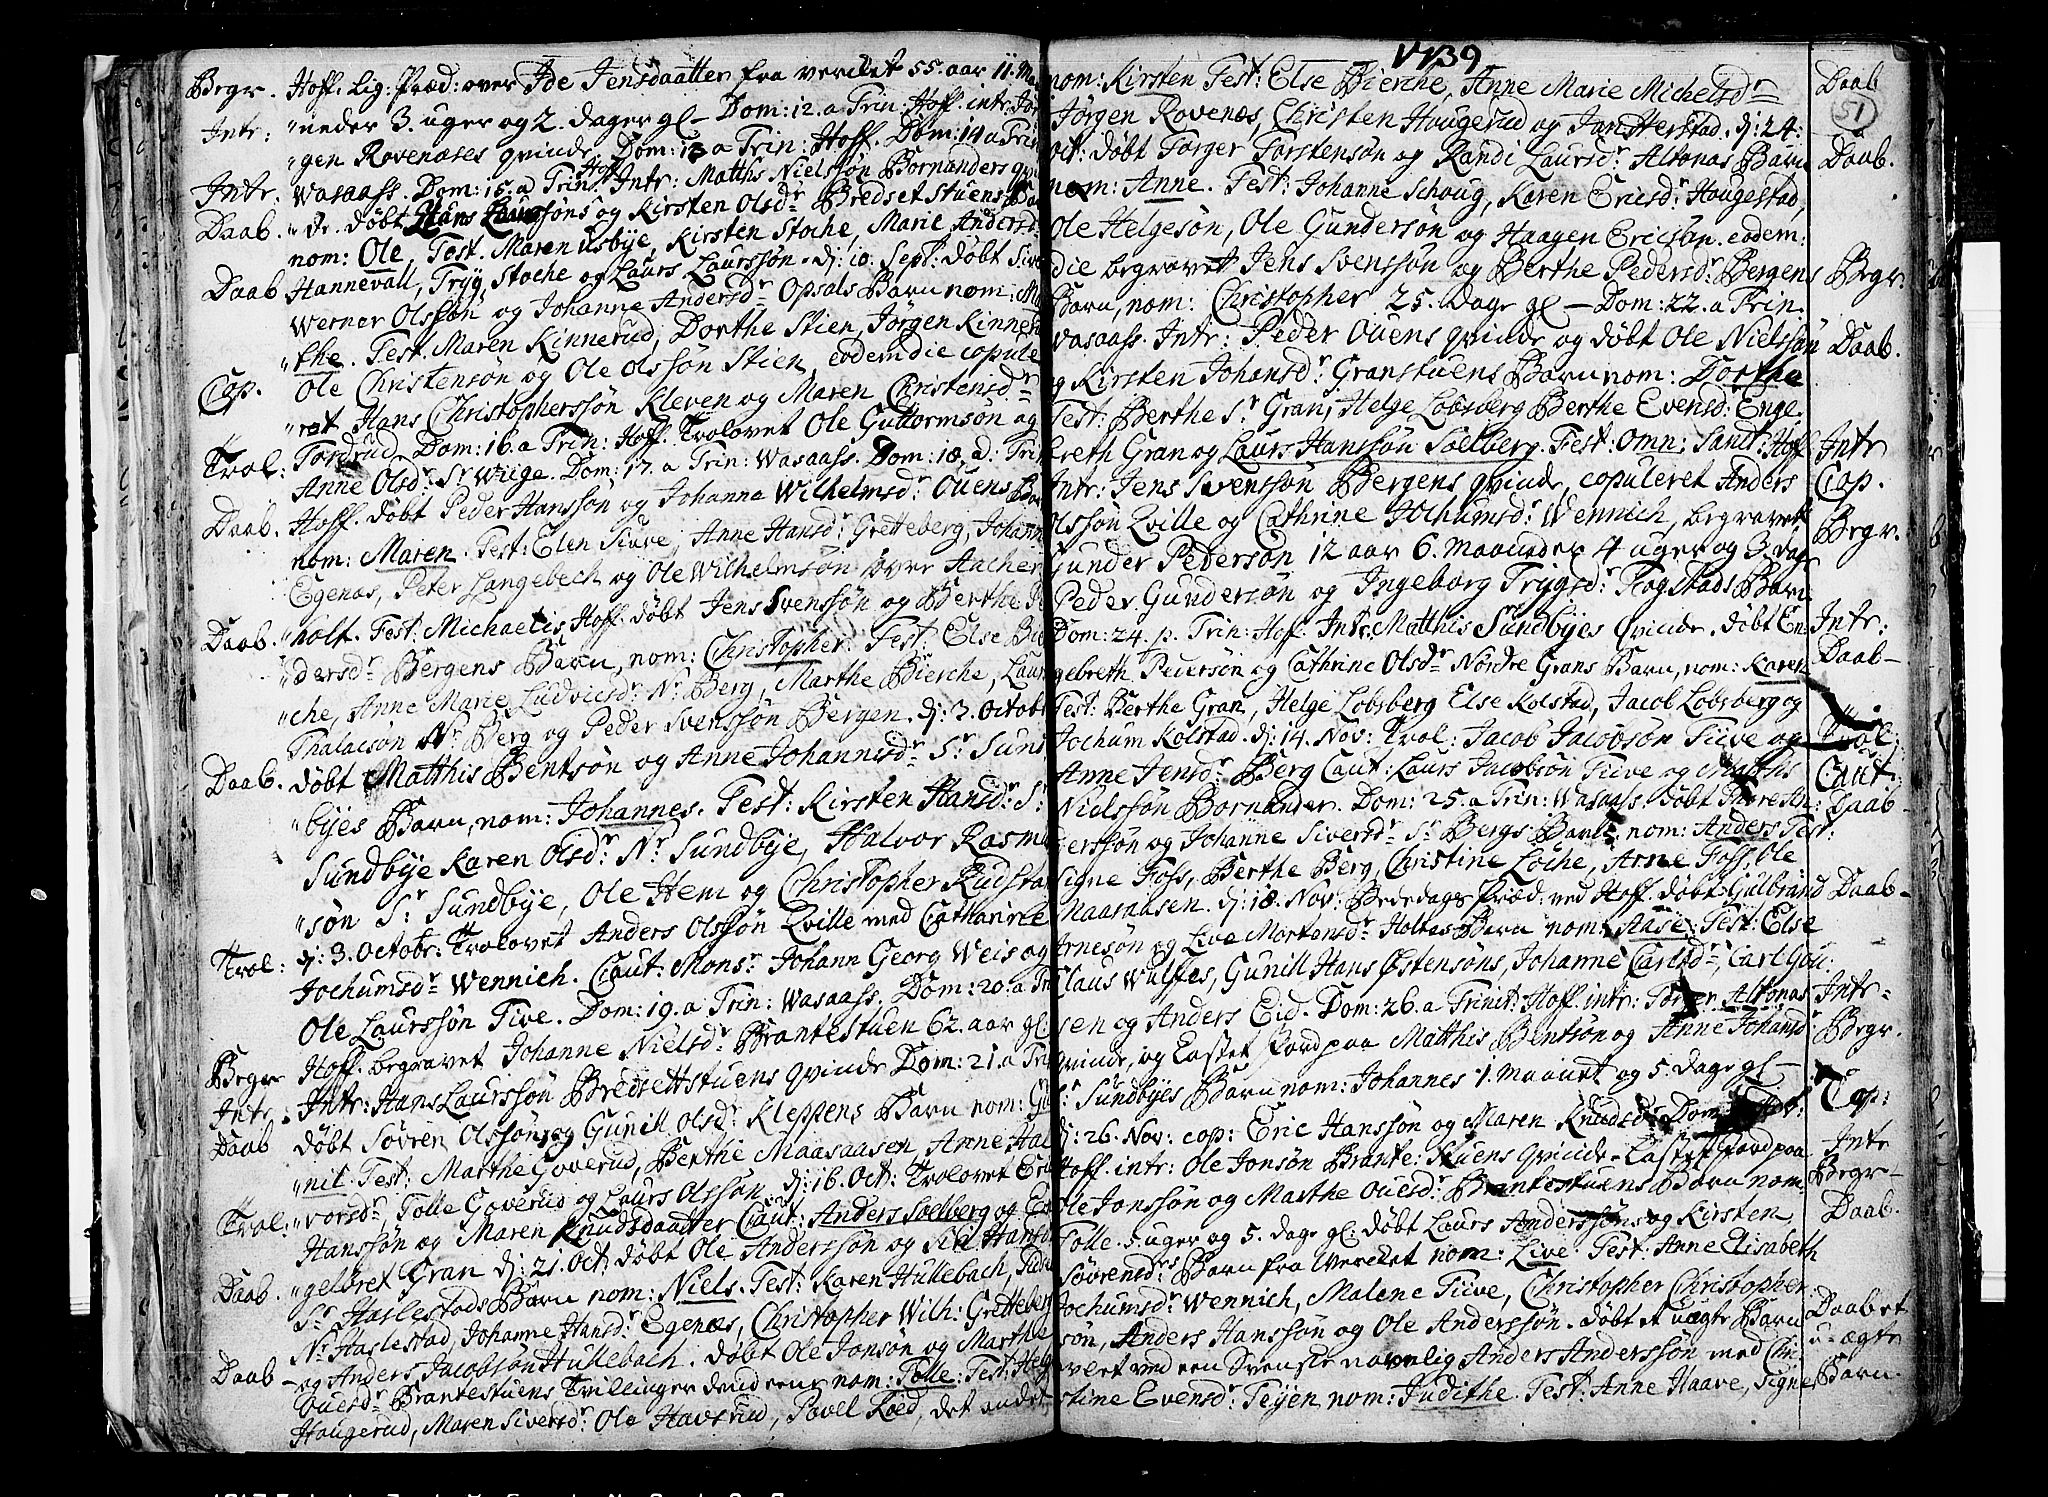 Begr. Hoff. Lig: Præd: over Ide Jensdaatter fra vercket 55. aar 11. Ma
Intr: "neder 3. uger og 2. dager gl – Dom: 12. a Trin: Hoff. intr: Jør
"gen Rovenæses qvinde Dom: 13 a Trin: Hoff. Dom: 14 a Trin:
Intr: Wasaass. Dom: 15. a Trin: Hoff Intr: Matths Nielssøn Bornanders qvin
Daab. "de. døbt Hans Laurssøns og Kirsten Olsdr Bredset Stuens Bar
nom: Ole, Test. Maren Usbye, Kirsten Stoche, Marie Andersd:
Daab Hannevall, Tryg Stoche og Laurs Laurssøn. dj: 10. Sept: døbt Sive
Werner Olssøn og Johanne Andersdr Opsals Barn nom: Ma
"the. Test. Maren Kinnerud, Dorthe Stien, Jørgen Kinne
Cop. Ole Christensøn og Ole Olssøn Stien, eodem die copule
"ret Hans Christopherssøn Kleven og Maren Christensdr
Trol: Tordrud. Dom: 16. a Trin: Hoff. Trolovet Ole Guttormsøn og
Anne Olsdr Sr Wiige. Dom: 17. a Trin: Wasaass. Dom: 18. a. Tri
Daab. Hoff. døbt Peder Hanssøn og Johanna Wilhelmsdr Ouens Bar
nom: Maren. Test: Elen Tiuve, Anne Hansdr Gretteberg, Johann
Egenæs, Peter Langebech og Ole Wilhelmsøn över Aacher
Daab. "holt. Fest: Michaelis Hoff. døbt Jens Svenssøn og Berthe Pe
"dersdr Bergens Barn, nom: Christopher. Test: Else Bie
"che, Anne Marie Ludvicsdr Nr Berg, Marthe Bierche, Laur
Thalacsøn Nr Berg og Peder Svenssøn Bergen. dj: 3. Octobr
Daab. døbt Matthis Bentsøn og Anne Johannesdr Sr Sund
"byes Barn, nom: Johannes. Test: Kirsten Hansdr Sr
Sundbye Karen Olsdr Nr Sundbye, Halvor Rasmu
"søn Sr Sundbye, Ole Hem og Christopher Rudstad
Trol: dj: 3. Octobr: Trolovet Anders Olssøn Qville med Catharine
Jochumsdr Wennich. Caut: Monsr Johann Georg Weis og
Ole Laurssøn Tive. Dom: 19. a Trin: Wasaass. Dom: 20. a Tri
Begr Hoff. begravet Johanne Nielsdr Brantestuen 62. aar gl.
Intr. Intr: Hans Laurssøn Bredsettstuens qvinde Dom: 21. a Tri
Daab døbt Søvren Olssøn og Gunill Olsdr Kleppens Barn nom: Gu
"nil. Test: Marthe Goverud, Berthe Maasaasen, Anne Hal
Trol: "vorsdr, Tolle Goverud og Laurs Olssøn. dj: 16. Oct: Trolovet Eri
Hanssøn og Maren Knudsdaatter Caut: Anders Soelberg og En
Daab. "gebret Gran dj: 21. Oct: døbt Ole Anderssøn og Siri Hansd
Sr Haslestads Barn nom: Niels. Test: Karen Hullebach, Sidse
Nr Haslestad, Johanne Hansdr Egenæs, Christopher Wilh: Gretteberg
Daab – og Anders Jacobsøn Hullebach. døbt Ole Jonsøn og Marthe
Ouesdr Brantestuens Tvillinger dend eene nom: Tolle: Test: Helge
Hougerud, Maren Siversdr Ole Havsrud, Povel Roed, det andet
1739
51
nom: Kirsten Test: Else Bierche, Anne Marie Michelsdr Daab
Jørgen Rovenæs, Christen Hougerud og Jan Herstad. dj: 24:
Oct: døbt Torger Torstensøn og Randi Laursdr Altonas Barn Daab.
nom: Anne. Test: Johanne Schoug, Karen Ericsdr Hougestad,
Ole Helgesøn, Ole Gundersøn og Haagen Ericsøn. eodem:
die begravet Jens Svenssøn og Berthe Pedersdr Bergens Begr:
Barn, nom: Christopher 25. Dage gl – Dom: 22. a Trin.
Wasaass. Intr: Peder Ouens qvinde og døbt Ole Nielssøn Daab.
og Kirsten Johansdr Granstuens Barn nom: Dorthe
Test: Berthe Sr Gran, Helge Lobsberg Berthe Evensd: Enge
breth Gran og Laurs Hanssøn Soelberg. Fest: Omn: Sanct: Hoff. Intr
Intr: Jens Svenssøn Bergens qvinde, copuleret Anders Cop.
Olssøn Qville og Cathrine Jochumsdr Wennich, begravet Begr.
Gunder Pedersøn 12 aar 6. Maaneder 4 uger og 3. dage
Peder Gundersøn og Ingeborg Trygsdr Fogstads Barn
Dom: 24. p. Trin: Hoff. Intr. Matthis Sundbyes qvinde. døbt En Intr:
gebreth Pedersøn og Cathrine Olsdr Nordre Grans Barn, nom: Karen Daab –
Test: Berthe Gran, Helge Lobsberg Else Kolstad, Jacob Lobsberg og
Jochum Kolstad. dj: 14. Nov: Trol: Jacob Jacobsøn Tiuve og Trol:
Anne Jensdr Berg Caut: Laurs Jacobsøn Tiuve og Matths Caut:
Nielssøn Bornander. Dom: 25. a Trin: Wasaass. døbt Daab –
derssøn og Johanne Siversdr Sr Bergs Barn. nom: Anders Test:
Signe Foss, Berthe Berg, Christine Loche, Arne Foss, Ole
Maasaasen. dj: 18. Nov: Bededags Præd: ved Hoff. døbt Gulbrand Daab –
Arnesøn og Live Mortensdr Holtes Barn nom: Aase. Test: Else
Claus Wulfes, Gunill Hans Østensøns, Johanne Carlsdr, Carl Gou:
sen og Anders Eid. Dom: 26. a Trinit: Hoff. intr: Torger Altonas Intr –
qvinde, og Castet Jord paa Matthis Bentsøn og Anne Johansdr Begr.
Sr Sundbyes Barn nom: Johannes 1. Maanet og 5. dage gl –
dj: 26. Nov: cop: Eric Hanssøn og Maren Knudsdr Dom: Cop:
Hoff. intr: Ole Jonsøn Brante: stuens qvinde – Castet Jord paa Intr
Ole Jonssøn og Marthe Ouesdr Brantestuens Barn nom. Begr –
Tolle 5 uger og 5. dage gl: døbt Laurs Anderssøns og Kirsten Daab.
Søvrensdrs Barn fra Vercket nom: Live. Test. Anne Elisabeth
Jochumsdr Wennich, Malene Tiuve, Christopher Christopher
søn, Anders Hanssøn og Ole Anderssøn. døbt et uægte Barn Daab et
avlet ved een Svenske navnlig Anders Anderssøn med Chri u-ægte
stine Evensdr Teyen nom: Judithe. Test: Anne Haave, Signe Barn.